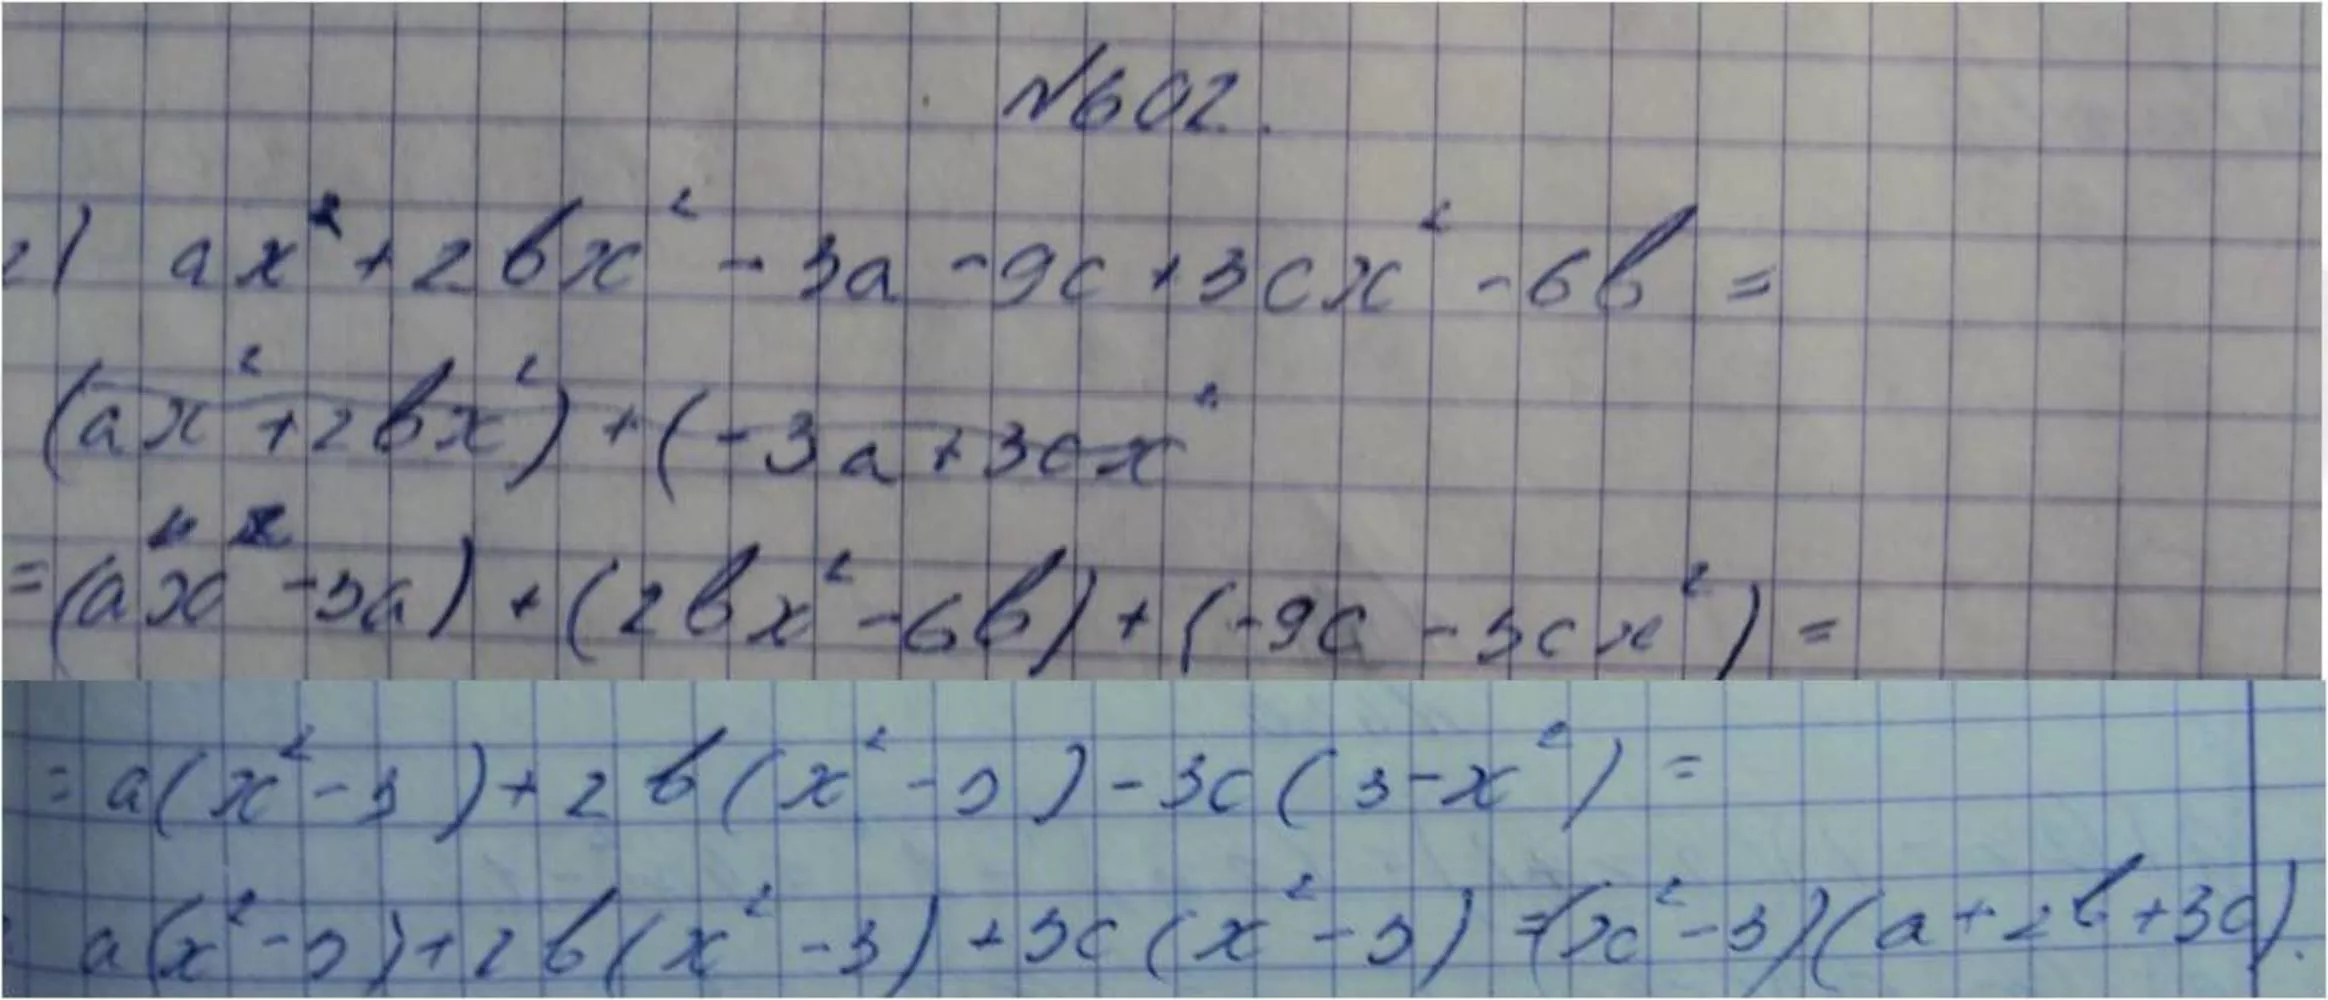 №602.
г) ax² + 2bx² - 3a - 9c + 3cx² - 6b =
(ax² + 2bx²) + (-3a + 3cx²
= (ax² - 3a) + (2bx² - 6b) + (-9c - 3cx²) =
= a(x² - 3) + 2b(x² - 3) - 3c(3 - x²) =
= a(x² - 3) + 2b(x² - 3) + 3c(x² - 3) = (x² - 3)(a + 2b + 3c).